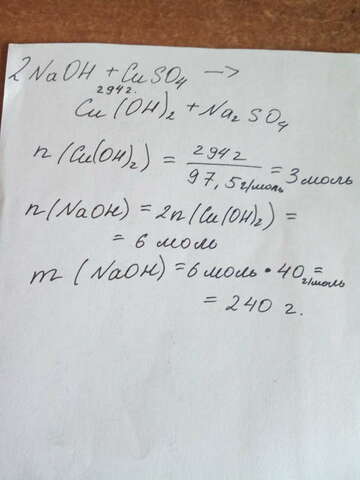 2NaOH + CuSO₄ →
294г.
Cu(OH)₂ + Na₂SO₄
n(Cu(OH)₂) = 294г / 97,5г/моль = 3моль
n(NaOH) = 2n(Cu(OH)₂) =
= 6 моль
m(NaOH) = 6 моль • 40г/моль =
= 240 г.